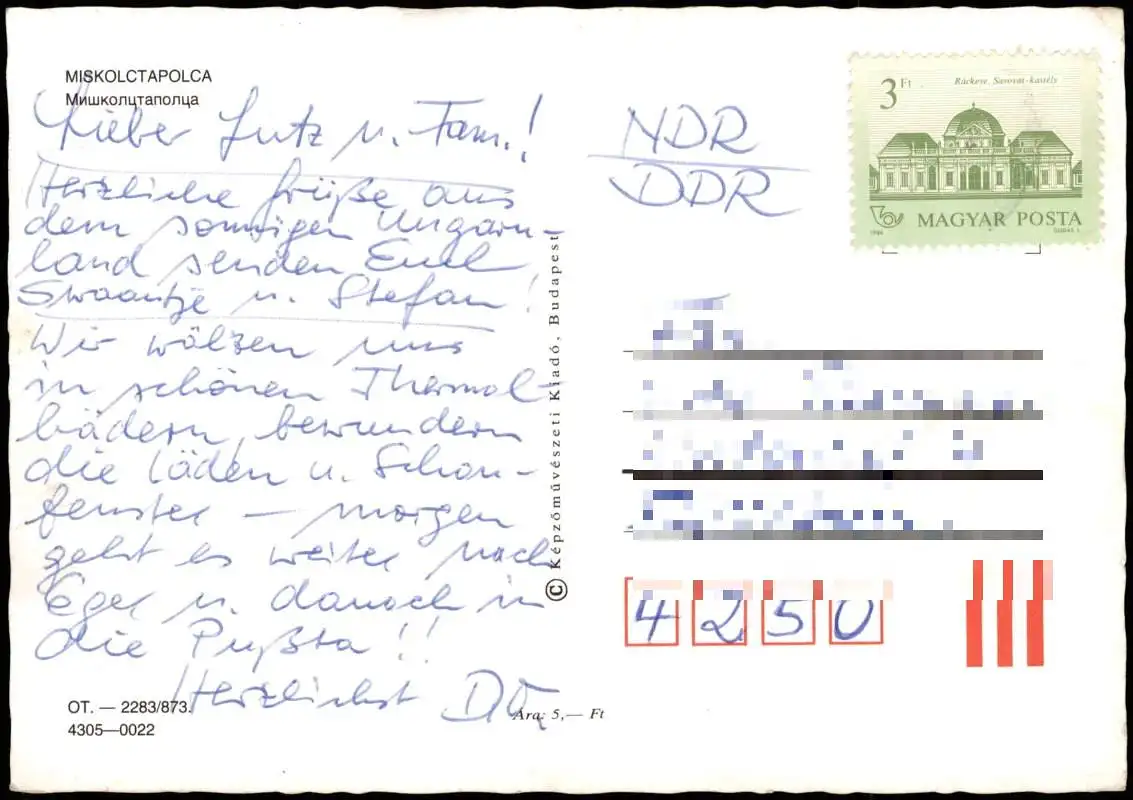 MISKOLCTAPOLCA
Мишколцтаполца
Lieber Lutz u. Fam.!
Herzliche Grüße aus
dem sonnigen Ungarn-
land senden Euch
Swaantje u. Stefan!
Wir wälzen uns
in schönen Thermal-
bädern, bewundern
die Läden u. Schau-
fenster — morgen
geht es weiter nach
Eger u. danach in
die Pußta!!
Herzlichst
OT. — 2283/873.
4305—0022
Ára: 5,— Ft
© Képzőművészeti Kiadó, Budapest
NDR
DDR
3 Ft
Ráckeve, Savoyai-kastély
MAGYAR POSTA
1986
4250